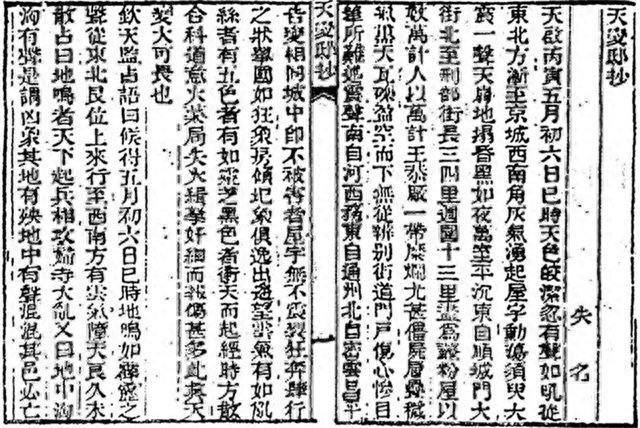 天變邸抄
失名
天啓丙寅五月初六日巳時天色皎潔忽有聲如吼從
東北方漸至京城西南角灰氣湧起屋宇動蕩須臾大
震一聲天崩地塌昏黑如夜萬室平沉東自順城門大
街北至刑部街長三四里週圍十三里盡爲齏粉屋以
數萬計人以萬計王恭廠一帶糜爛尤甚僵屍層疊穢
氣熏天瓦礫盈空而下無從辨別街道門戶傷心慘目
筆所難述震聲南自河西務東自通州北自密雲昌平
天變邸抄
一
告變相同城中即不被害者屋宇無不震裂狂奔肆行
之狀舉國如狂象房傾圮象俱逸出遙望雲氣有如亂
絲者有五色者有如靈芝黑色者衝天而起經時方散
合科道意火藥局失火緝拏奸細而報傷甚多此真天
變大可畏也
欽天監占語曰候得五月初六日巳時地鳴如霹靂之
聲從東北艮位上來行至西南方有雲氣障天良久未
散占曰地鳴者天下起兵相攻婦寺大亂又曰地中洶
洶有聲是謂凶象其地有殃地中有聲混混其邑必亡